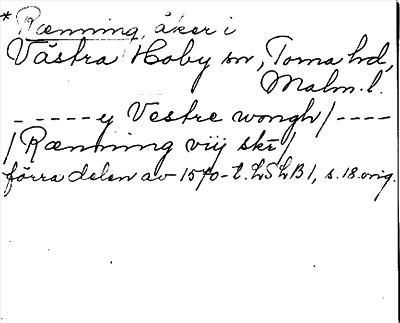 *Rænning, åker i
Västra Hoby sn, Torna hd,
Malm. l.
- - - - - y Vestre wongh / - - - -
/ Rænning viij skr /
förra delen av 1570-t. LSLB 1, s. 18 orig.